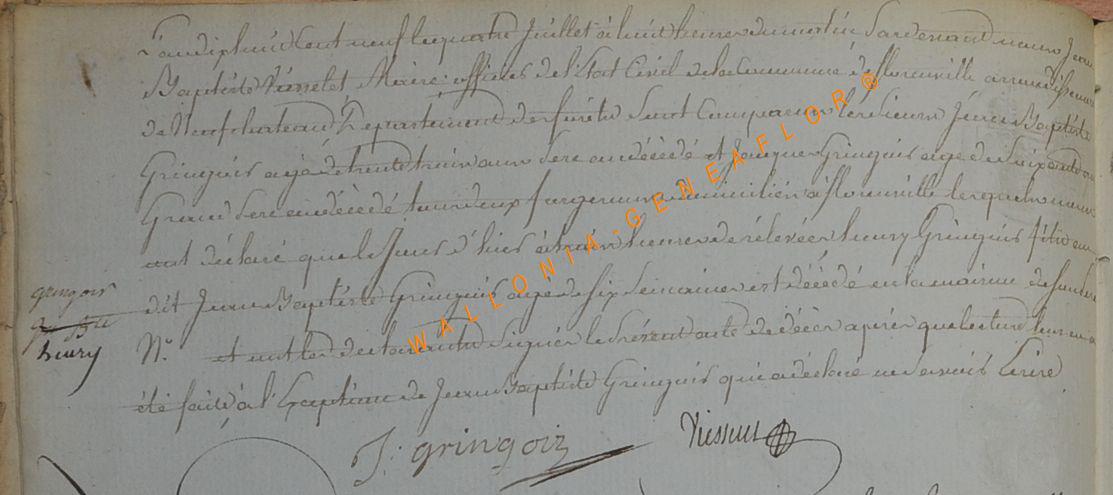 L'an dix huit cent neuf le quatre Juillet à huit heures du matin Pardevant nous Jean
Baptiste Maire officier de l'Etat Civil de la Commune de florenville arrondissement
de Neufchateau Département des forêts Sont Comparus les Sieurs Jean Baptiste
Gringois agé de trente trois ans Pere au décédé et Jacques Gringois agé de Soixante
Grand Pere au décédé tous deux forgerons domiciliés à florenville lesquels nous
ont déclaré que le Jour d'hier à trois heures de relevée henry Gringois fils au
dit Jean Baptiste Gringois agé de six Semaines est décédé en la maison
gringois
henry
N° et ont les déclarants Signés le Présent acte de décès après que lecture leur en a
été faite à l'Exception de Jean Baptiste Gringois qui a déclaré ne savoir Ecrire
J: gringoiz
WALLONIA-GENEAFLOR®